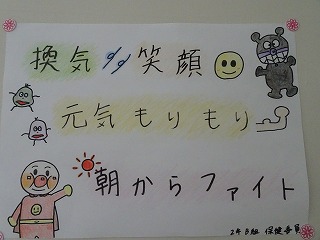 換気 笑顔
元気もりもり
朝からファイト
2年B組 保健委員